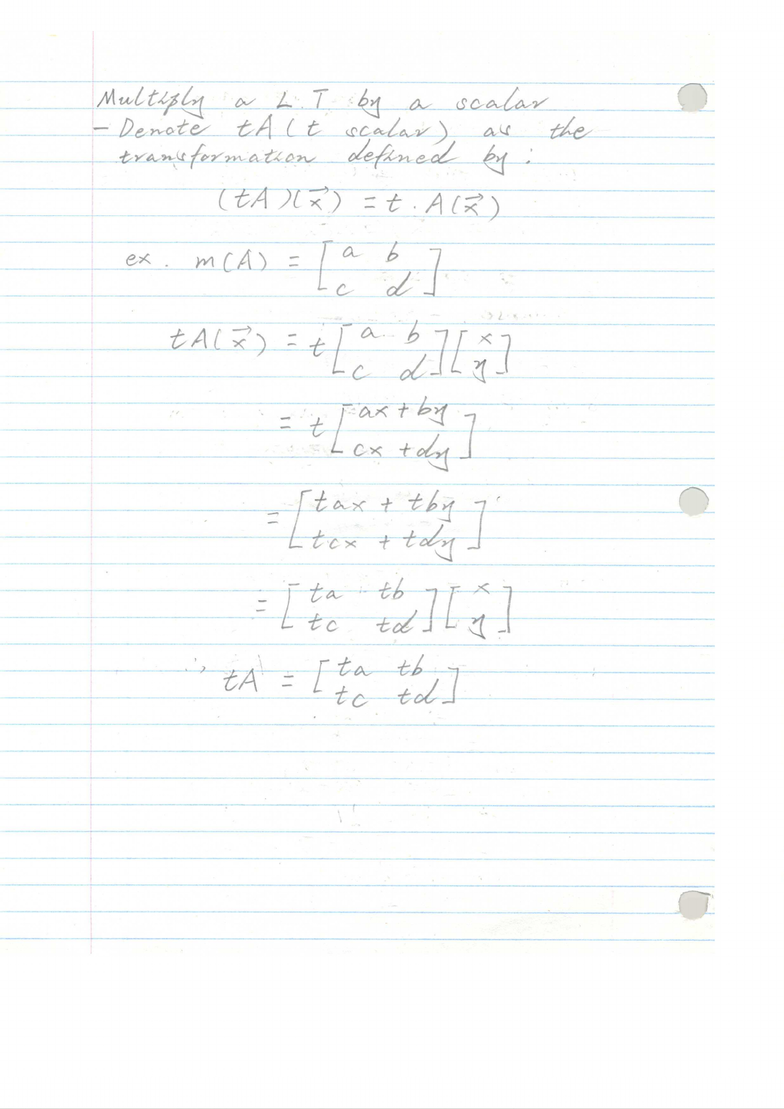 Multiply a L.T by a scalar
- Denote tA (t scalar) as the
transformation defined by:
(tA)(x⃗) = t · A(x⃗)
ex. m(A) = [a b; c d]
tA(x⃗) = t [a b; c d] [x; y]
= t [ax + by; cx + dy]
= [tax + tby; tcx + tdy]
= [ta tb; tc td] [x; y]
∴ tA = [ta tb; tc td]